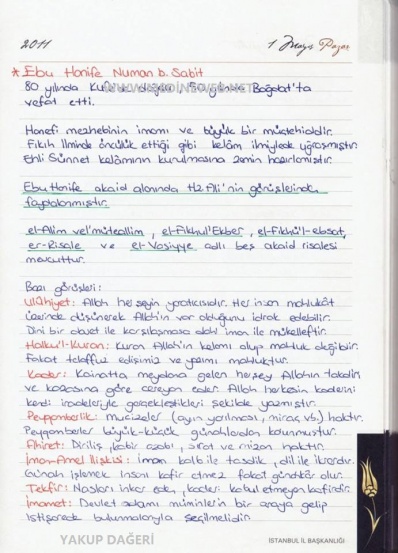 2011 1 Mayıs Pazar
* Ebu Hanife Numan b. Sabit
80 yılında Kufede doğdu. 150 yılında Bağdat'ta
vefat etti.
Hanefi mezhebinin imamı ve büyük bir müctehiddir.
Fıkıh ilminde öncülük ettiği gibi kelâm ilmiylede uğraşmıştır.
Ehli Sünnet kelâmının kurulmasına zemin hazırlamıştır.
Ebu Hanife akaid alanında Hz Ali'nin görüşlerinden
faydalanmıştır.
el-Alim vel'müteallim, el-Fıkhul'Ekber, el-Fıkhü'l-ebsat,
er-Risale ve el-Vasiyye adlı beş akaid risalesi
mevcuttur.
Bazı görüşleri:
Uluhiyet: Allah her şeyin yaratıcısıdır. Her insan mahlukât
üzerinde düşünerek Allah'ın var olduğunu idrak edebilir.
Dini bir davet ile karşılaşmasa dahi iman ile mükelleftir.
Halku'l-Kuran: Kuran Allah'ın kelamı olup mahluk değildir.
Fakat telaffuz edişimiz ve yazımı mahluktur.
Kader: Kainatta meydana gelen herşey Allahın takdiri
ve kazasına göre cereyan eder. Allah herkesin kaderini
kendi iradeleriyle gerçekleştikleri şekilde yazmıştır.
Peygamberlik: mucizeler (ayın yarılması, miraç vb.) haktır.
Peygamberler büyük-küçük günahlardan korunmuştur.
Ahiret: Diriliş, kabir azabı, sırat ve mizan haktır.
İman-Amel İlişkisi: iman kalb ile tasdik, dil ile ikrardır.
Günah işlemek insanı kafir etmez fakat günahkâr olur.
Tekfir: Nasları inkar eden, kaderi kabul etmeyen kafirdir.
İmamet: Devlet adamı müminlerin bir araya gelip
istişarede bulunmalarıyla seçilmelidir.
YAKUP DAĞERİ
İSTANBUL İL BAŞKANLIĞI